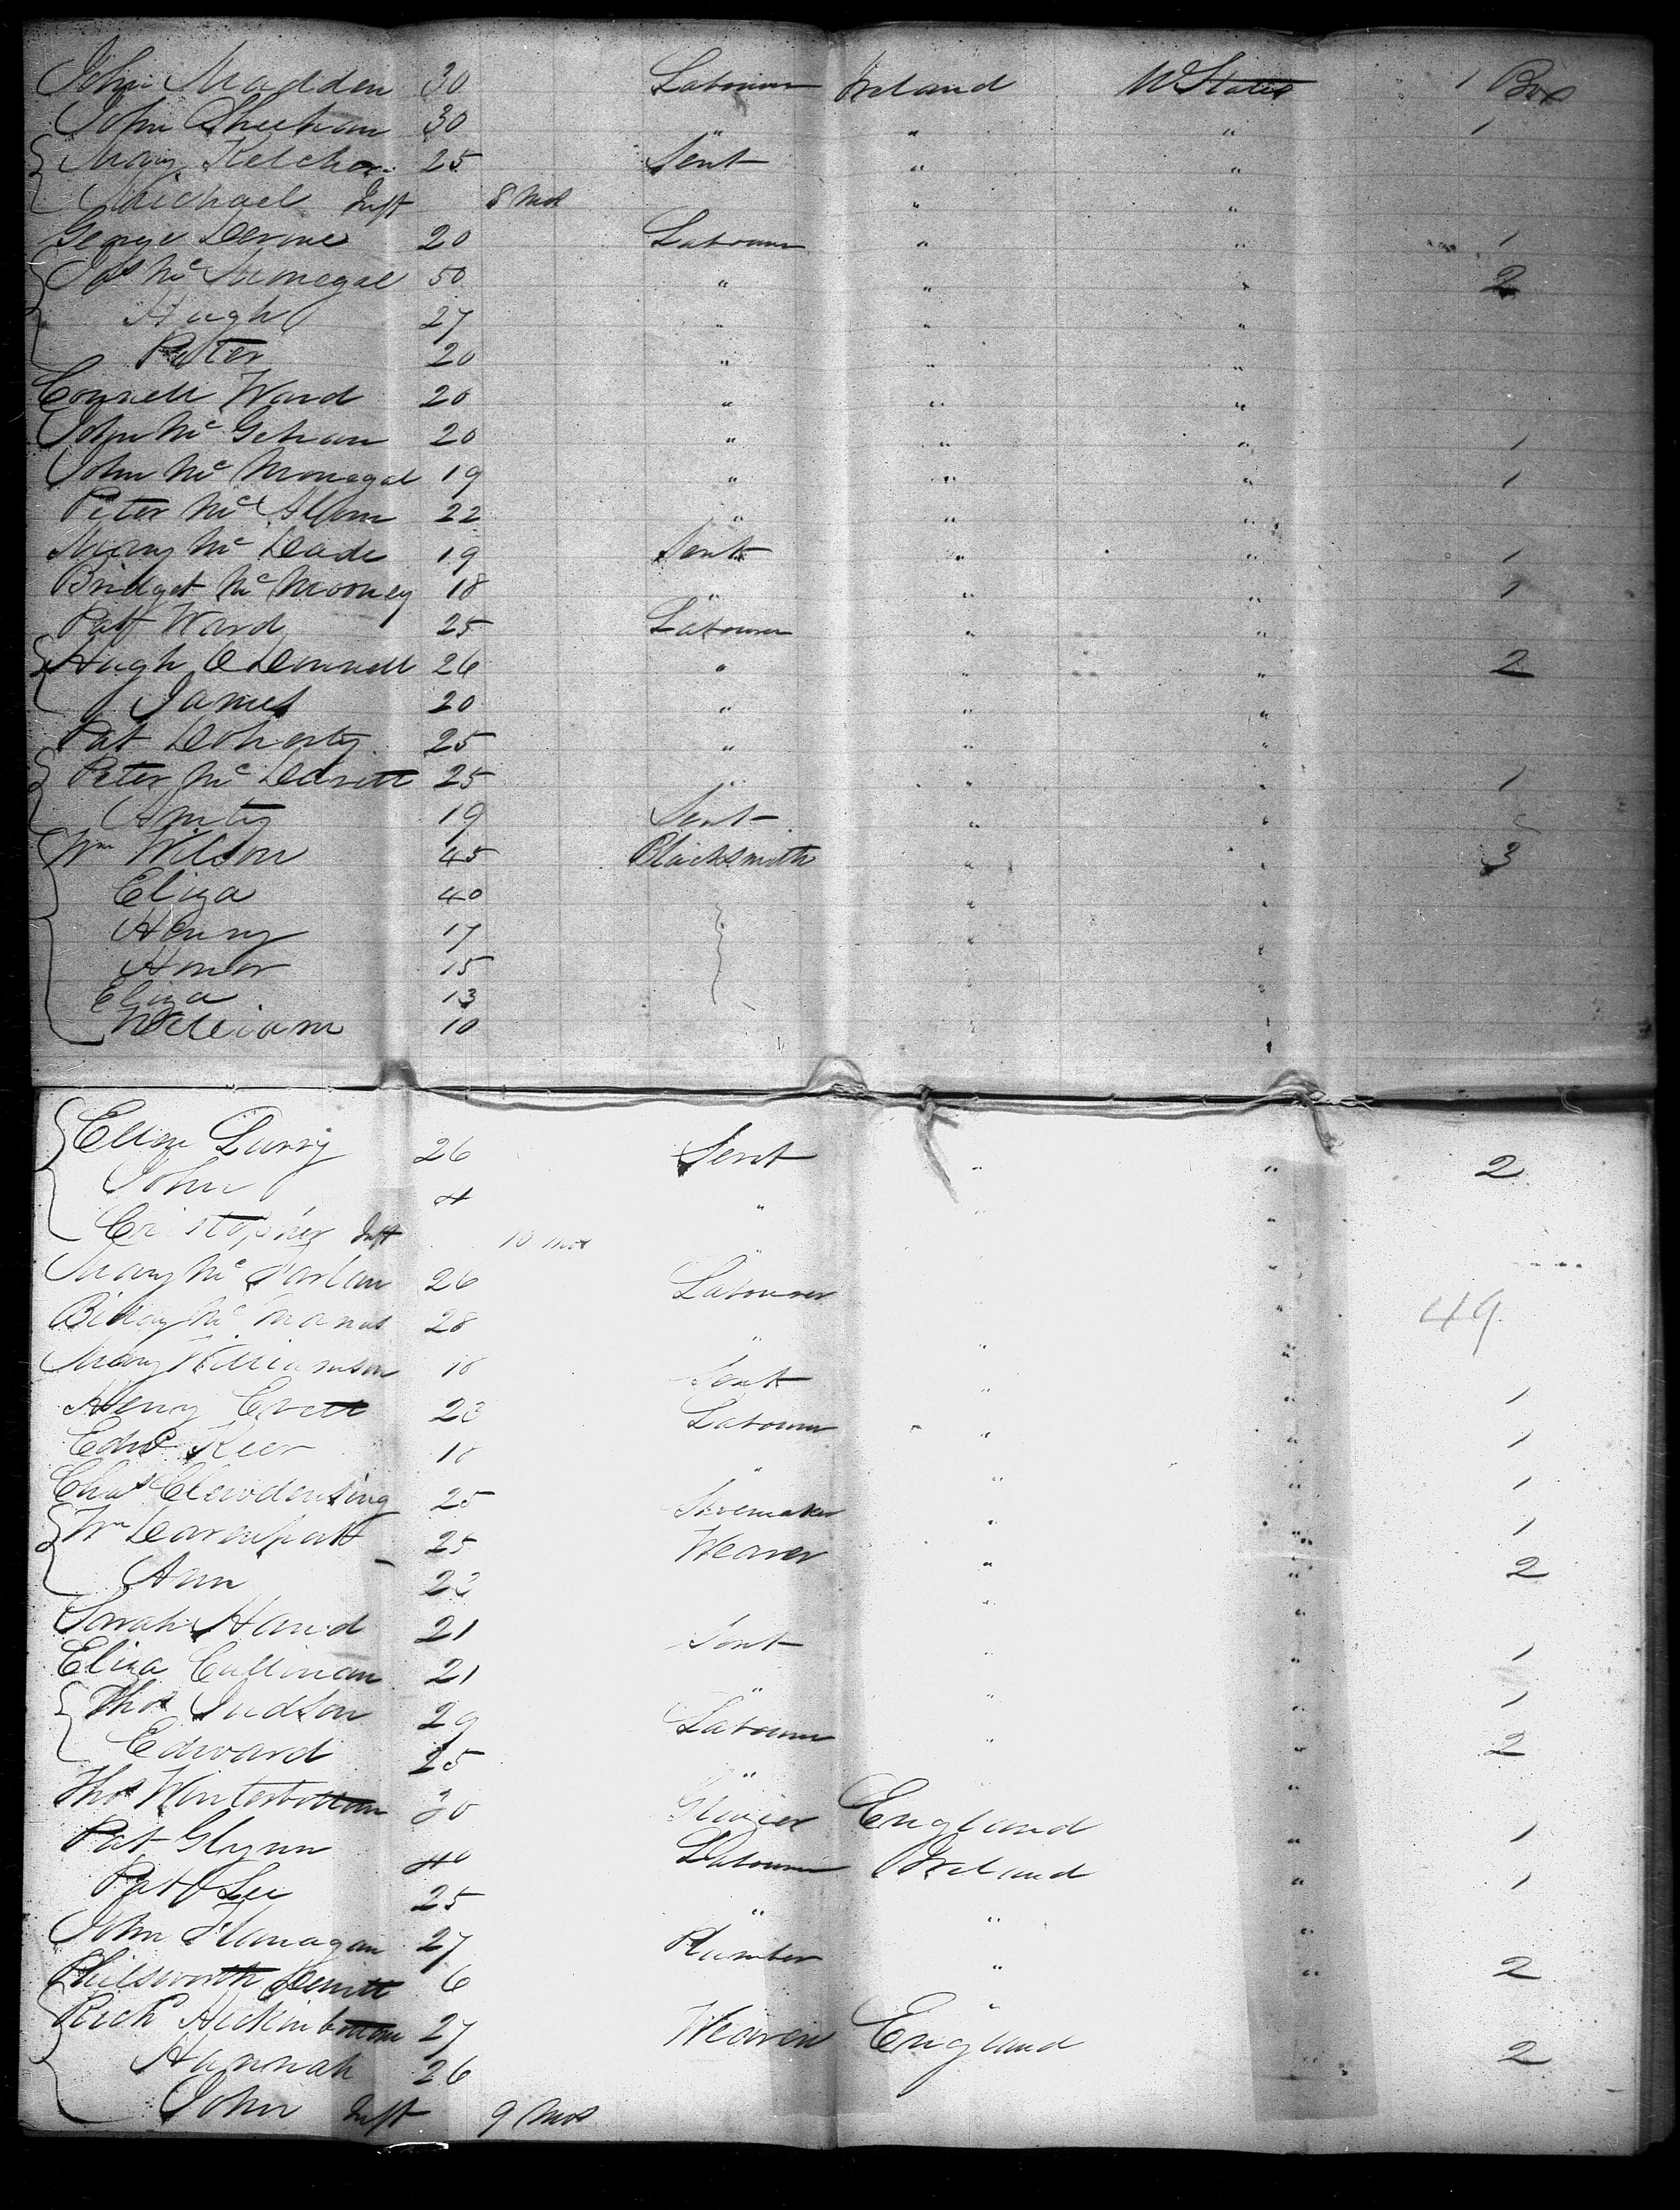 John Madden 30 Labourer Ireland U States 1 Box
John Sheehan 30 " " " 1
Mary Kelcher 25 Sert " "
Michael Inft 8 Mos " "
George Devine 20 Labourer " " 1
Jas Mc Monegal 50 " " " 2
Hugh 27 " " "
Peter 20 " " "
Connell Ward 20 " " "
John Mc Gehan 20 " " " 1
John Mc Monegal 19 " " " 1
Peter Mc 22 " " "
Mary Mc Dade 19 Sert " " 1
Bridget Mc Mooney 18 " " " 1
Pat Ward 25 Labourer " "
Hugh O Donnell 26 " " " 2
James 20 " " "
Pat Doherty 25 " " "
Peter Mc Devitt 25 " " " 1
19 Sert " "
Wm Wilson 45 Blacksmith " " 3
Eliza 40 " "
Henry 17 " "
Honor 15 " "
Eliza 13 " "
William 10 "
Ellen 26 Sert " " 2
John 4 " " "
Cristopher Inft 10 mos " "
Mary Mc Parlan 26 Labourer "
Biddy Mc Manus 28 " " " 49
Mary Williamson 18 Sert " " 1
Henry 23 Labourer " " 1
Edwd Keer 18 " " " 1
Chas 25 Shoemaker " " 1
Wm Davenport 25 Weaver " " 2
Ann 23 " "
Sarah Hand 21 Sert " " 1
Eliza Cullinan 21 " " " 1
Thos Judson 29 Labourer " " 2
Edward 25 " "
Thos Winterbottom 30 England " 1
Pat Glynn 40 Labourer Ireland " 1
Pat Lee 25 " " "
John Flanagan 27 Plumber " " 2
6 "
Richd Hickinbottom 27 Weaver England " 2
Hannah 26
John Inft 9 Mos